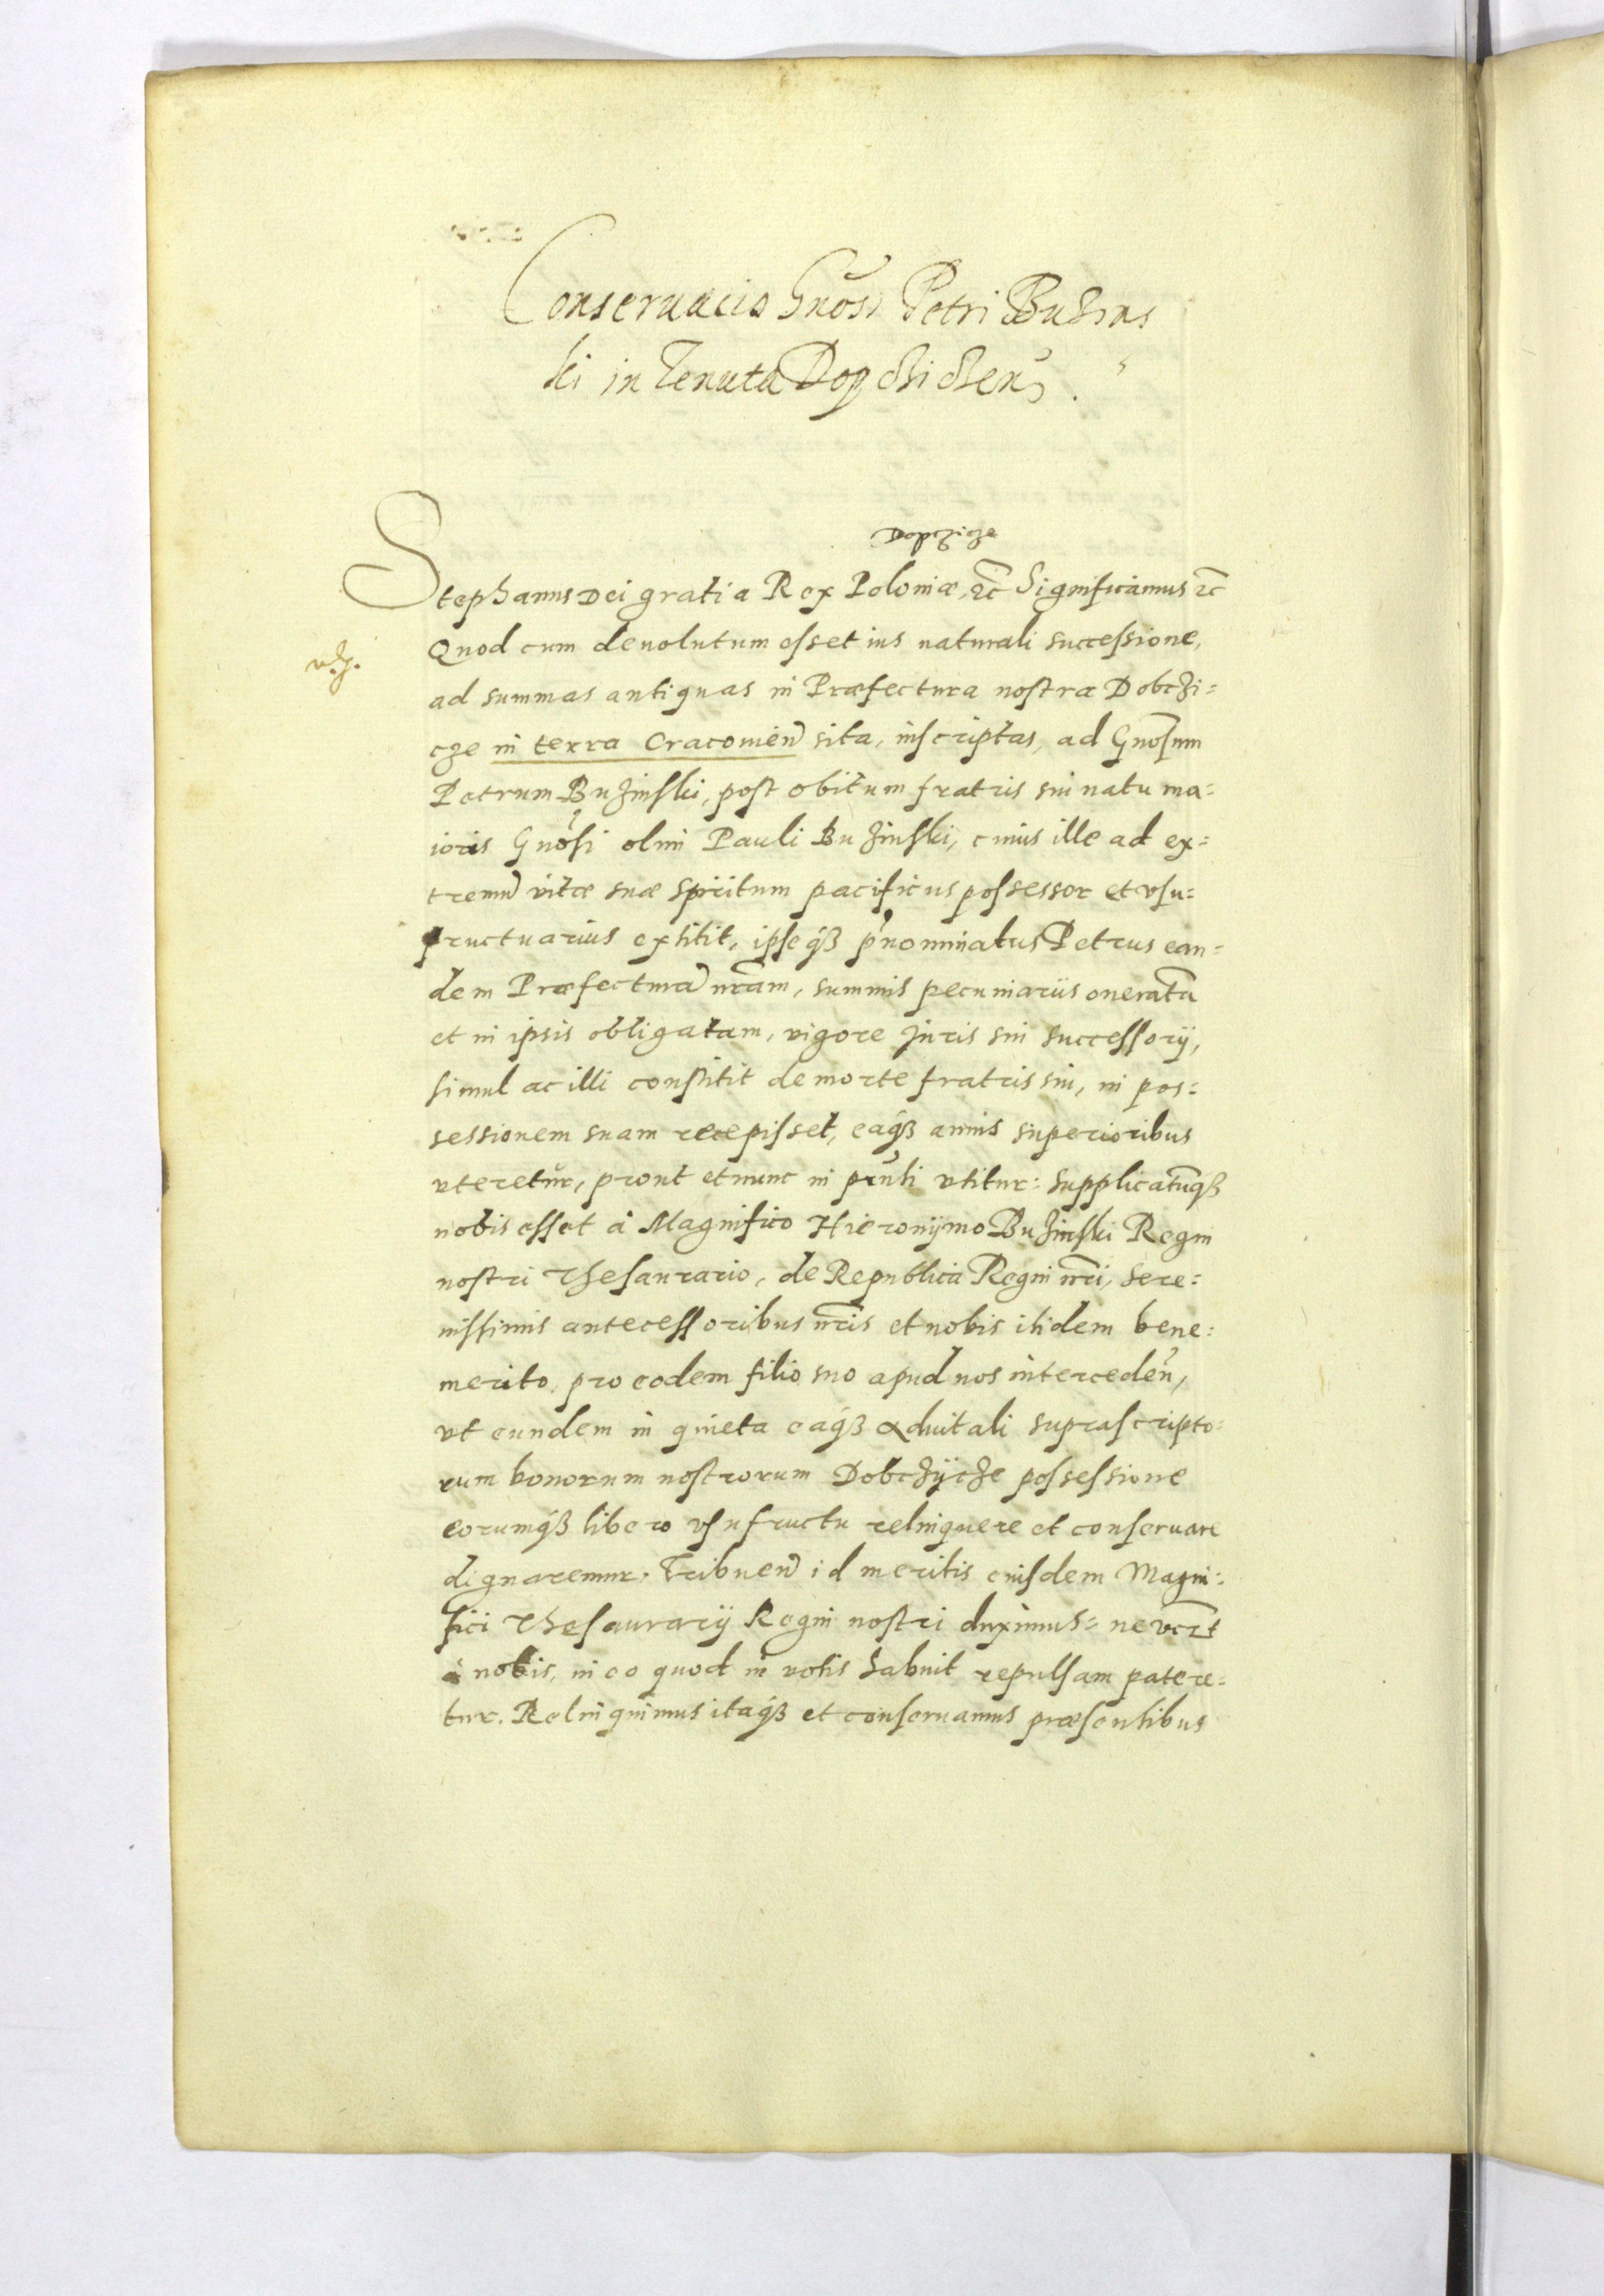 Conseruacio Gnosi Petri Buzins
ki in Tenuta Dopchichen.
Dopczicze
Stephanus Dei gratia Rex Poloniæ, etc Significamus etc
Quod cum deuolutum esset ius naturali successione,
ad summas antiquas in Præfectura nostra Dobczi=
cze in terra Cracouien sita, inscriptas, ad Gnosum
Petrum Buzinski, post obitum fratris sui natu ma=
ioris Gnosi olim Pauli Buzinski, cuius ille ad ex=
tremu vitæ suæ spiritum pacificus possessor et vsu=
fructuarius extitit, ipseq́ꝫ p̃nominatus Petrus ean=
dem Præfectura nr̃am, summis pecuniariis oneratã
et in ipsis obligatam, vigore Juris sui successorij,
simul ac illi constitit de morte fratris sui, in pos=
sessionem suam recepisset, eaq́ꝫ annis superioribus
vteretur, prout et nunc in pr̃nti vtitur: supplicatũq́ꝫ
nobis esset à Magnifico Hieronijmo Buzinski Regni
nostri Thesaurario, de Republica Regni nr̃i, sere=
nissimis antecessoribus nr̃is et nobis itidem bene=
merito, pro eodem filio suo apud nos interceden̄,
vt eundem in quieta eaq́ꝫ aduitali suprascripto=
rum bonorum nostrorum Dobczÿcze possessione
eorumq́ꝫ libero vsufructu relinquere et conseruare
dignaremur. Tribuen̄ id meritis eiusdem Magni=
fici Thesaurarij Regni nostri duximus= ne
à nobis, in eo quod in votis habuit repulsam patere=
tur. Relinquimus itaq́ꝫ et conseruamus præsentibus